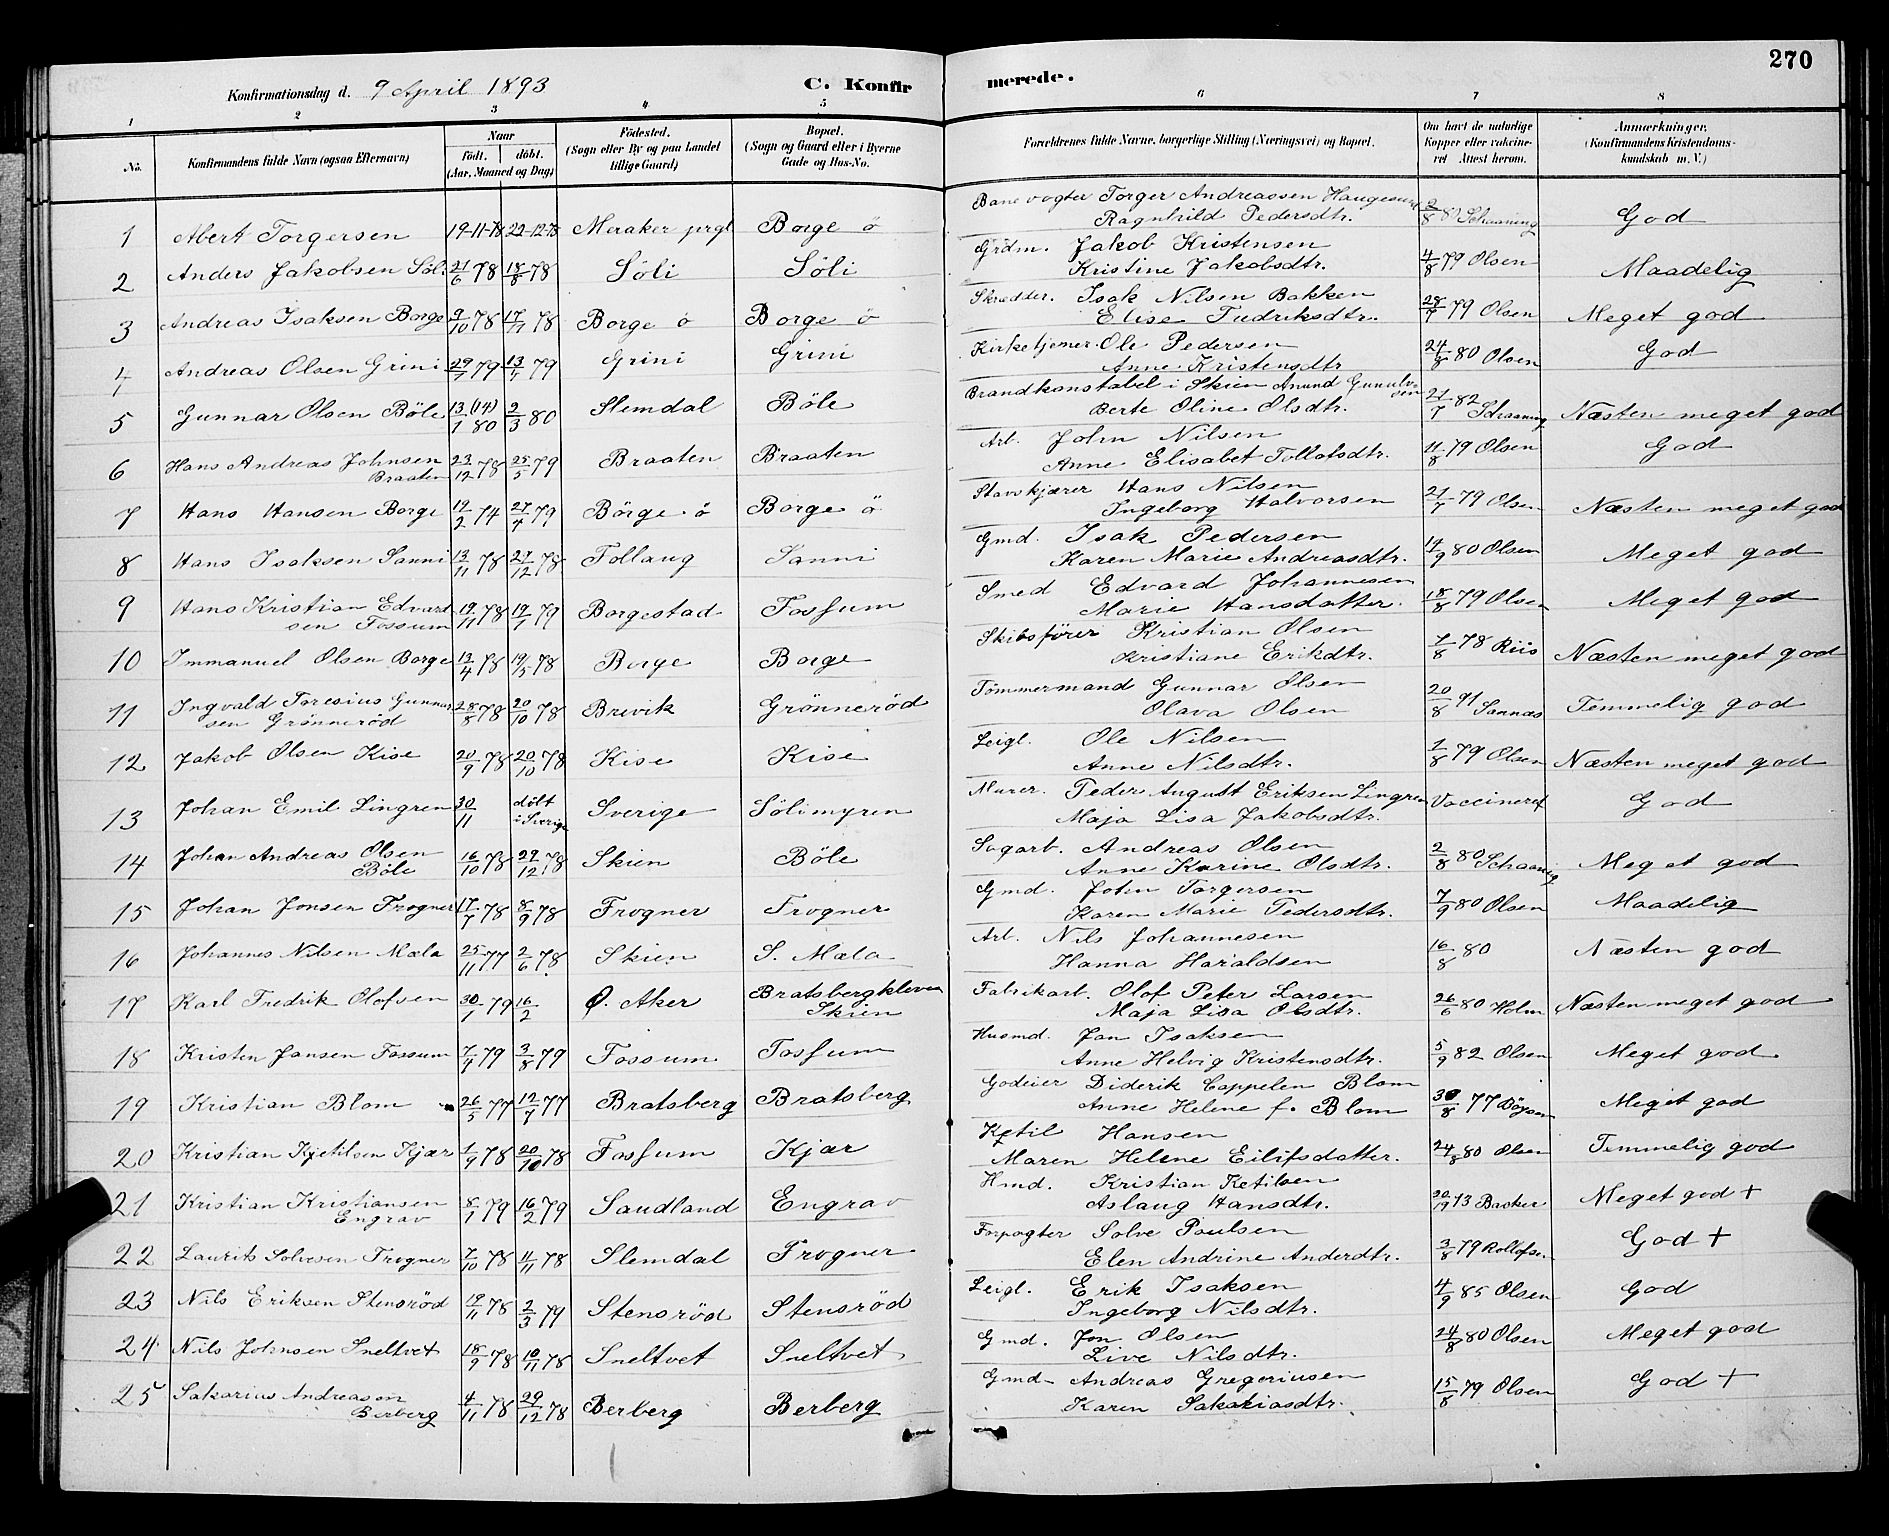 270
Konfirmationsdag d. 9 April 1893 C. Konfirmerede.
1 2 3 4 5 6 7 8
No. Konfirmandens fulde Navn (ogsaa Efternavn) Naar født. døbt. (Aar, Maaned og Dag) Fødested. (Sogn eller By og paa Landet tillige Gaard) Bopæl. (Sogn og Gaard eller i Byerne Gade og Hus-No. Forældrenes fulde Navne, borgerlige Stilling (Næringsvei) og Bopæl. Om havt de naturlige Kopper eller vakcineret Attest herom. Anmærkninger, (Konfirmandens Kristendomskundskab m. V.)
1 Abert Torgersen 19-11-78 22-12-78 Meraker prgl Borge ö Banevogter Torger Andreassen Haugesund
Ragnhild Pedersdtr. Schaaning God
2 Anders Jakobsen Söli 21/6 78 18/8 78 Söli Söli Grdm. Jakob Kristensen
Kristine Jakobsdtr. 4/8 79 Olsen Maadelig
3 Andreas Isaksen Borge 9/10 78 17/11 78 Borge ö Borge ö Skrædder. Isak Nilsen Bakken
Elise Fredriksdtr. 28/7 79 Olsen Meget god
4 Andreas Olsen Grini 29/1 79 13/4 79 Grini Grini Kirketjener. Ole Pedersen
Anne Kristensdtr 24/8 80 Olsen God
5 Gunnar Olsen Böle 13 (14)/1 80 2/3 80 Slemdal Böle Brandkonstabel i Skien Anund Gunulvsen
Berte Oline Olsdtr. 21/7 82 Schaaning Næsten meget god
6 Hans Andreas Johnsen
Braaten 23/12 78 25/5 79 Braaten Braaten Arb. John Nilsen
Anne Elisabet Tollofsdtr. 11/8 79 Olsen God
7 Hans Hansen Borge 19/2 74 27/4 79 Börge ö Borge ö Stavskjærer Hans Nilsen
Ingeborg Halvorsen 21/7 79 Olsen Næsten meget god
8 Hans Isaksen Sanni 13/11 78 27/12 78 Follaug Sanni Gmd. Isak Pedersen
Karen Marie Andreasdtr. 14/9 80 Olsen Meget god
9 Hans Kristian Edvardsen Fossum 19/11 78 19/1 79 Borgestad Fossum Smed Edvard Johannesen
Marie Hansdatter. 18/8 79 Olsen Meget god
10 Immanuel Olsen Borge 13/4 78 19/5 78 Borge Borge Skibsfører Kristian Olsen
Kristiane Erikdtr. 7/8 78 Riis Næsten meget god
11 Ingvald Toresius Gunnarsen Grönneröd 28/8 78 20/10 78 Brevik Grönneröd Tömmermand Gunnar Olsen
Olava Olsen 20/8 91 Sannæs Temmelig god
12 Jakob Olsen Kise 20/9 78 20/10 78 Kise Kise Leigl. Ole Nilsen
Anne Nilsdtr. 1/8 79 Olsen Næsten meget god
13 Johan Emil Lingren 30/11 döbt i Sverige Sverige Sölimyren Murer. Peder August Eriksen Lingren
Maja Lisa Jakobsdtr. Vaccineret God
14 Johan Andreas Olsen
Böle 16/10 78 29/12 78 Skien Böle Sagarb. Andreas Olsen
Anne Karine Olsdtr. 2/8 80 Schaaning Meget god
15 Johan Jonsen Frogner 17/7 78 8/9 78 Frogner Frogner Gmd. John Torgersen
Karen Marie Pedersdtr. 7/9 80 Olsen Maadelig
16 Johannes Nilsen Mæla 25/11 77 2/6 78 Skien S. Mæla Arb. Nils Johannesen
Hanna Haraldsen 16/8 80 Næsten god
17 Karl Fredrik Olofsen 30/1 79 16/2 Ø. Aker Bratsbergkleven
Skien Fabrikarb. Olof Peter Larsen
Maja Lisa Olsdtr. 26/6 80 Holm Næsten meget god
18 Kristen Jansen Fossum 7/4 79 3/8 79 Fossum Fossum Husmd. Jan Isaksen
Anne Helvig Kristensdtr. 5/9 82 Olsen Meget god
19 Kristian Blom 26/5 77 12/7 77 Bratsberg Bratsberg Godeier Diderik Cappelen Blom
Anne Helene f. Blom 30/8 77 Böysen Meget god
20 Kristian Kjetilsen Kjær 1/9 78 20/10 78 Fossum Kjær Ketil Hansen
Maren Helene Eilifsdatter. 24/8 80 Olsen Temmelig god
21 Kristian Kristiansen
Engrav 8/1 79 16/2 79 Saudland Engrav Hmd. Kristian Ketilsen
Aslaug Hansdtr. Backer Meget god +
22 Laurits Solvesen Frogner 7/10 78 11/11 78 Slemdal Frogner Forpagter Solve Poulsen
Elen Andrine Andersdtr. 3/8 79 Rollofsen God +
23 Nils Eriksen Stensröd 19/11 78 2/3 79 Stensröd Stensröd Leigl. Erik Isaksen
Ingeborg Nilsdtr. 4/9 85 Olsen God
24 Nils Johnsen Sneltvet 18/9 78 10/11 78 Sneltvet Sneltvet Gmd. Jon Olsen
Live Nilsdtr. 24/8 80 Olsen Meget god
25 Sakarius Andreasen
Berberg 4/11 78 29/12 78 Berberg Berberg Gmd. Andreas Gregeriusen
Karen Sakariasdtr. 15/8 79 Olsen God +